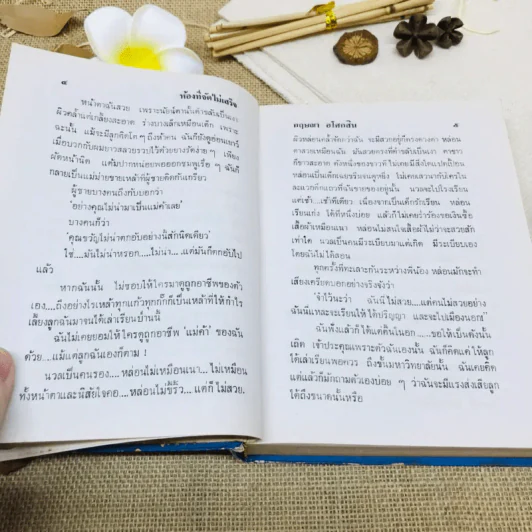 ๘
ห้องที่จัดไม่เสร็จ
หน้าตาฉันสวย เพราะนัยน์ตานั้นดำขลับเป็นเงา
ผิวคล้ำแต่เกลี้ยงสะอาด ร่างบางเล็กเหมือนเด็ก เพราะ
ฉะนั้น แม้จะมีลูกติดโต ๆ ถึงห้าคน ฉันก็ยังดูอ่อนเยาว์
เมื่อบวกกับผมยาวสลวยรวบไว้ด้วยยางรัดง่าย ๆ เพียง
ผัดหน้านิด แต้มปากหน่อยพอออกชมพูเรื่อ ๆ ฉันก็
กลายเป็นแม่ม่ายขายเหล้าที่ผู้ชายติดกันเกรียว
ผู้ชายบางคนถึงกับบอกว่า
‘อย่างคุณไม่น่ามาเป็นแม่ค้าเลย’
บางคนก็ว่า
‘คุณขวัญไม่น่าตกอับอย่างนี้สักนิดเดียว’
ใช่....มันไม่น่าหรอก....ไม่น่า....แต่มันก็ตกอับไป
แล้ว
หากฉันนั้น ไม่ชอบให้ใครมาดูถูกอาชีพของตัว
เอง....ถึงอย่างไรเหล้าทุกแก้วทุกกั๊กก็เป็นเหล้าที่ให้กำไร
เลี้ยงลูกฉันมาจนได้เล่าเรียนป่านนี้
ฉันไม่เคยยอมให้ใครดูถูกอาชีพ ‘แม่ค้า’ ของฉัน
ด้วย....แม้แต่ลูกฉันเองก็ตาม !
นวลเป็นคนรอง....หล่อนไม่เหมือนแนา....ไม่เหมือน
ทั้งหน้าตาและนิสัยใจคอ....หล่อนไม่ขี้ริ้ว...แต่ก็ไม่สวย.
กฤษณา อโศกสิน
๙
ผิวหล่อนคล้ำจัดกว่าฉัน จะมีสวยอยู่ก็ตรงดวงตา หล่อน
ตาสวยเหมือนฉัน มันสวยตรงที่ดำขลับเป็นเงา ตาขาว
ก็ขาวสะอาด ดังหนึ่งของขาวที่ไม่เคยมีสิ่งใดแปดเปื้อน
หล่อนเป็นเด็กแข็งขืนจนดูหยิ่ง ไม่เคยเสวนากับใครใน
แต่เช้า...เช้าทีเดียว เนื่องจากเป็นเด็กรักเรียน หล่อน
เรียนเก่ง ได้ที่หนึ่งบ่อย
เท่าใด นวลเป็นคนมีระเบียบมาแต่เกิด มีระเบียบเอง
โดยฉันไม่ได้สอน
ทุกครั้งที่ทะเลาะกันระหว่างพี่น้อง หล่อนมักจะทำ
เสียงเครียดบอกอย่างจริงจังว่า
‘จำไว้นะว่า ฉันนี่ไม่สวย....แต่คนไม่สวยอย่าง
ฉันนี่แหละจะเรียนให้ได้ปริญญา และจะไปเมืองนอก’
ฉันฟังแล้วก็ได้แต่ตื้นในอก....ขอให้เป็นดังนั้น
เถิด เจ้าประคุณเพราะตัวฉันเองนั้น ฉันก็คิดแค่ให้ลูก
ได้เล่าเรียนพอควร ถึงชั้นมหาวิทยาลัยนั้น ฉันเคยคิด
แต่แล้วก็มักถามตัวเองบ่อย ๆ ว่าฉันจะมีแรงส่งเสียลูก
ได้ถึงขนาดนั้นหรือ